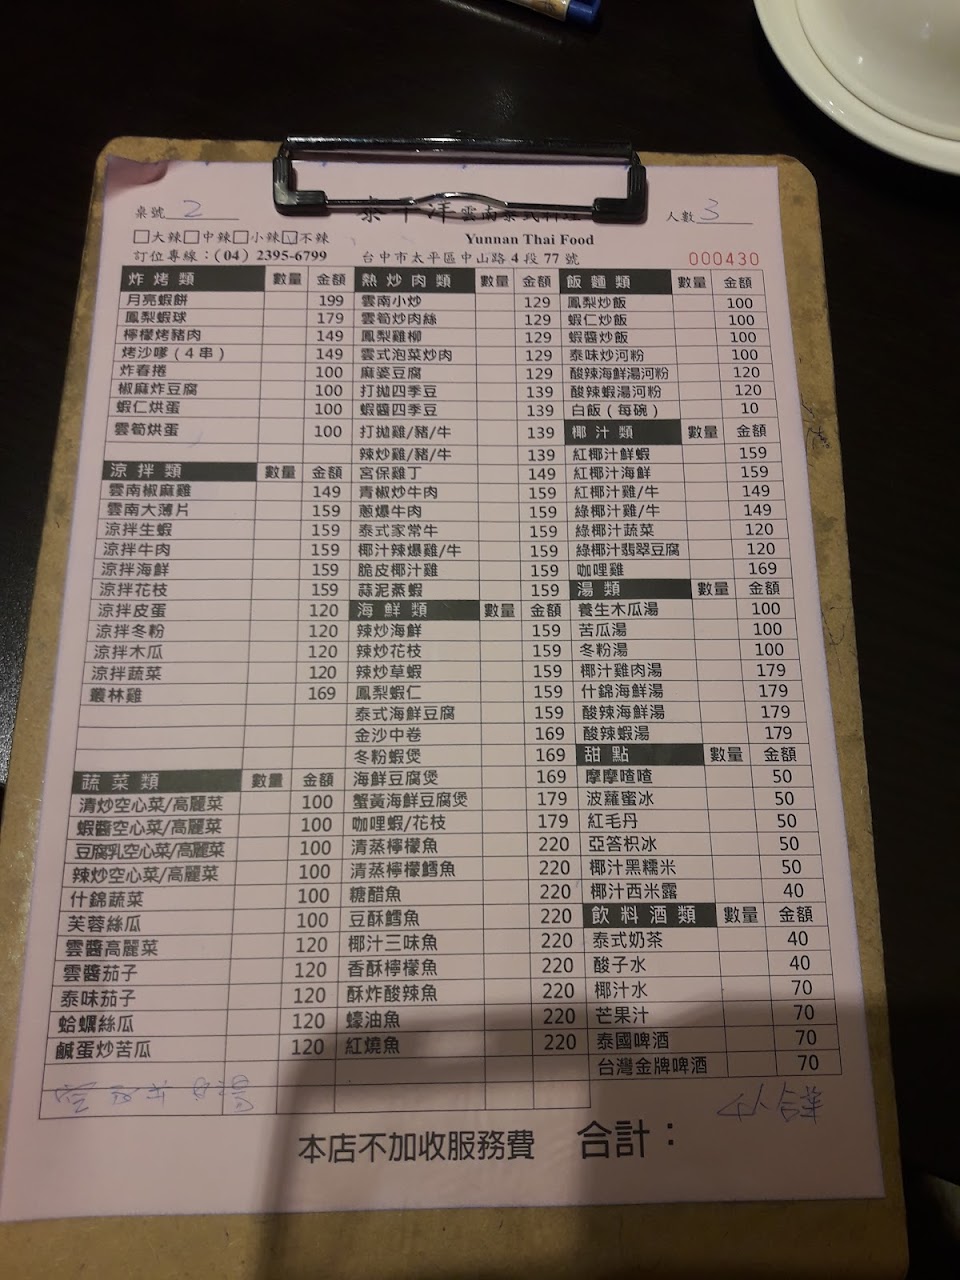 桌號 2
雲南泰式料理
人數 3
大辣 中辣 小辣 不辣
Yunnan Thai Food
訂位專線：(04) 2395-6799
台中市太平區中山路 4 段 77 號
000430
炸烤類 數量 金額
月亮蝦餅 199
鳳梨蝦球 179
檸檬烤豬肉 149
烤沙嗲（4 串） 149
炸春捲 100
椒麻炸豆腐 100
蝦仁烘蛋 100
雲筍烘蛋 100
涼拌類 數量 金額
雲南椒麻雞 149
雲南大薄片 159
涼拌生蝦 159
涼拌牛肉 159
涼拌海鮮 159
涼拌花枝 159
涼拌皮蛋 120
涼拌冬粉 120
涼拌木瓜 120
涼拌蔬菜 120
叢林雞 169
蔬菜類 數量 金額
清炒空心菜/高麗菜 100
蝦醬空心菜/高麗菜 100
豆腐乳空心菜/高麗菜 100
辣炒空心菜/高麗菜 100
什錦蔬菜 100
芙蓉絲瓜 100
雲醬高麗菜 120
雲醬茄子 120
泰味茄子 120
蛤蠣絲瓜 120
鹹蛋炒苦瓜 120
熱炒肉類 數量 金額
雲南小炒 129
雲筍炒肉絲 129
鳳梨雞柳 129
雲式泡菜炒肉 129
麻婆豆腐 129
打拋四季豆 139
蝦醬四季豆 139
打拋雞/豬/牛 139
辣炒雞/豬/牛 139
宮保雞丁 149
青椒炒牛肉 159
蔥爆牛肉 159
泰式家常牛 159
椰汁辣爆雞/牛 159
脆皮椰汁雞 159
蒜泥蒸蝦 159
海鮮類 數量 金額
辣炒海鮮 159
辣炒花枝 159
辣炒草蝦 159
鳳梨蝦仁 159
泰式海鮮豆腐 159
金沙中卷 169
冬粉蝦煲 169
海鮮豆腐煲 169
蟹黃海鮮豆腐煲 179
咖哩蝦/花枝 179
清蒸檸檬魚 220
清蒸檸檬鱈魚 220
糖醋魚 220
豆酥鱈魚 220
椰汁三味魚 220
香酥檸檬魚 220
酥炸酸辣魚 220
蠔油魚 220
紅燒魚 220
飯麵類 數量 金額
鳳梨炒飯 100
蝦仁炒飯 100
蝦醬炒飯 100
泰味炒河粉 100
酸辣海鮮湯河粉 120
酸辣蝦湯河粉 120
白飯（每碗） 10
椰汁類 數量 金額
紅椰汁鮮蝦 159
紅椰汁海鮮 159
紅椰汁雞/牛 149
綠椰汁雞/牛 149
綠椰汁蔬菜 120
綠椰汁翡翠豆腐 120
咖哩雞 169
湯類 數量 金額
養生木瓜湯 100
苦瓜湯 100
冬粉湯 100
椰汁雞肉湯 179
什錦海鮮湯 179
酸辣海鮮湯 179
酸辣蝦湯 179
甜點 數量 金額
摩摩喳喳 50
波蘿蜜冰 50
紅毛丹 50
亞答枳冰 50
椰汁黑糯米 50
椰汁西米露 40
飲料酒類 數量 金額
泰式奶茶 40
酸子水 40
椰汁水 70
芒果汁 70
泰國啤酒 70
台灣金牌啤酒 70
本店不加收服務費 合計：